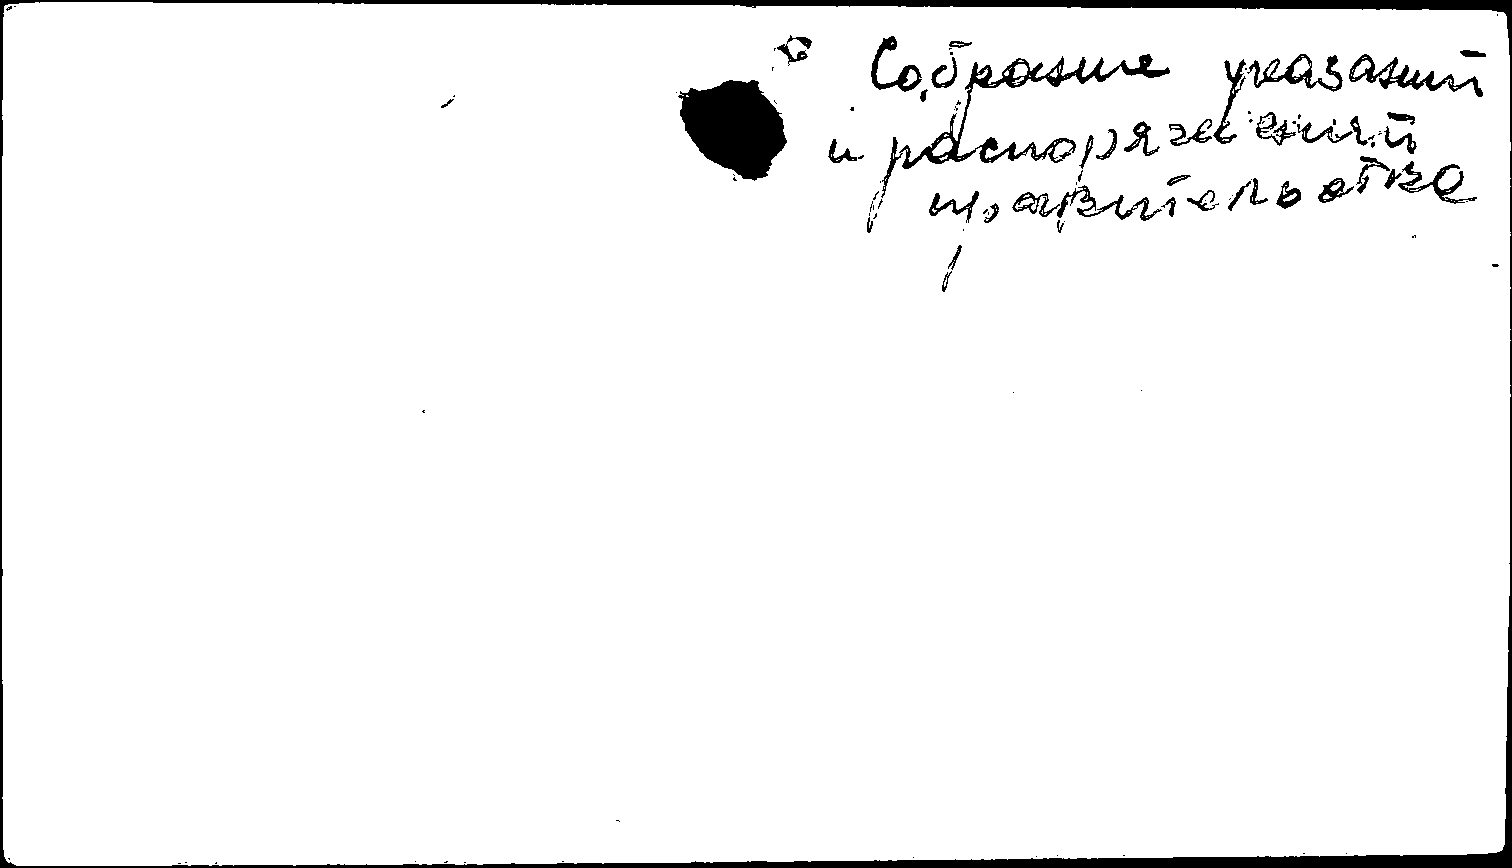 Собрание указаний
и распоряжений
правительства